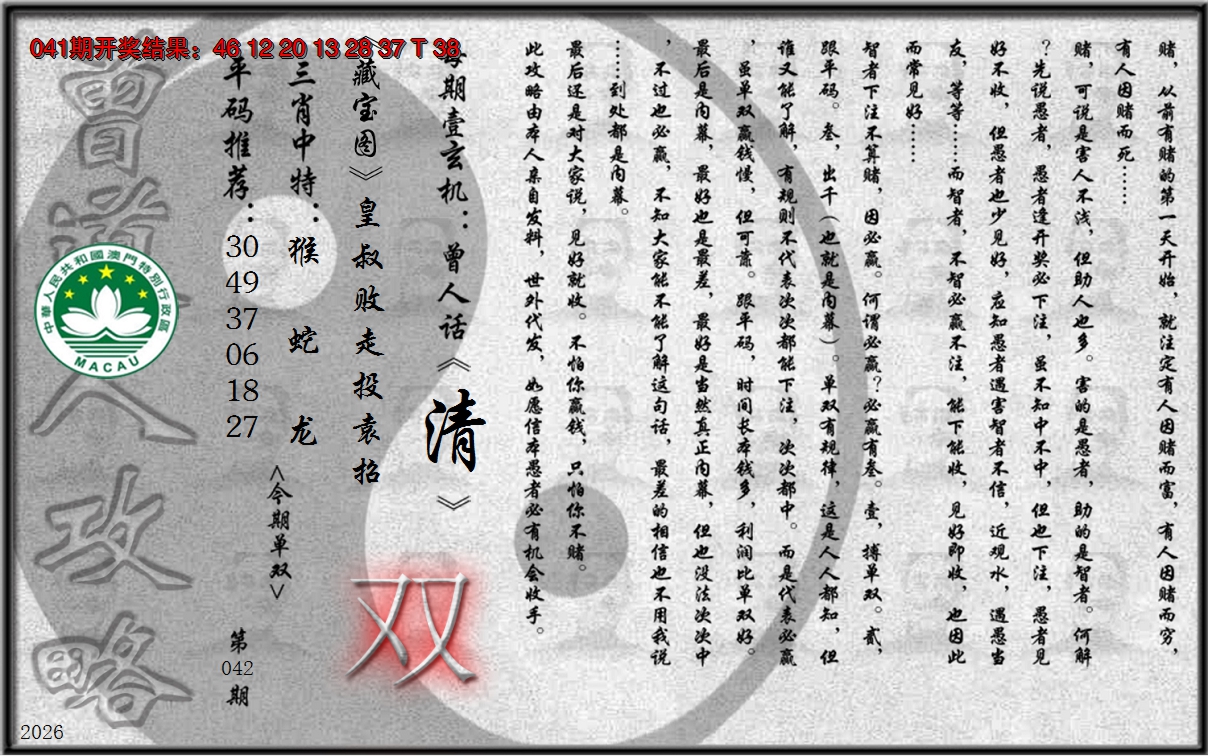 041期开奖结果：46 12 20 13 28 37 T 38
赌，从前有赌的第一天开始，就注定有人因赌而富，有人因赌而穷，
有人因赌而死……
赌，可说是害人不浅，但助人也多。害的是愚者，助的是智者。何解
？先说愚者，愚者逢开奖必下注，虽不知中不中，但也下注，愚者见
好不收，但愚者也少见好，应知愚者遇害智者不信，近观水，遇愚当
友，等等……而智者，不智必赢不注，能下能收，见好即收，也因此
而常见好……
智者下注不算赌，因必赢。何谓必赢？必赢有叁。壹，搏单双。贰，
跟平码。叁，出千（也就是内幕）。单双有规律，这是人人都知，但
谁又能了解，有规则不代表次次都能下注，次次都中。而是代表必赢
，虽单双赢钱慢，但可靠。跟平码，时间长本钱多，利润比单双好。
最后是内幕，最好也是最差，最好是当然真正内幕，但也没法次次中
，不过也必赢，不知大家能不能了解这句话，最差的相信也不用我说
……到处都是内幕。
最后还是对大家说，见好就收。不怕你赢钱，只怕你不赌。
此攻略由本人亲自发料，世外代发，如愿信本愚者必有机会收手。
每期壹玄机：曾人话《清》
《藏宝图》皇叔败走投袁招
双
三肖中特：猴 蛇 龙
<今期单双>
平码推荐：30 49 37 06 18 27
第042期
曾道人攻略
中華人民共和國澳門特別行政區
MACAU
2026